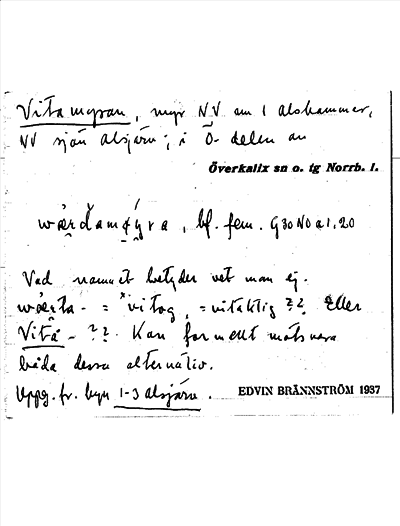 Vitamyran, myr NV om 1 alshammar,
NV sjön alsjärv; i Ö. delen av
Överkalix sn o. tg Norrb. l.
bf. fem. G30 NO a 1.20
Vad namnet betyder vet man ej.
= *vitog, = vitaktig ?? Eller
Vita - ?? Kan formellt motsvara
båda dessa alternativ.
Uppg. fr. byn 1-3 alsjärv.
EDVIN BRÄNNSTRÖM 1937